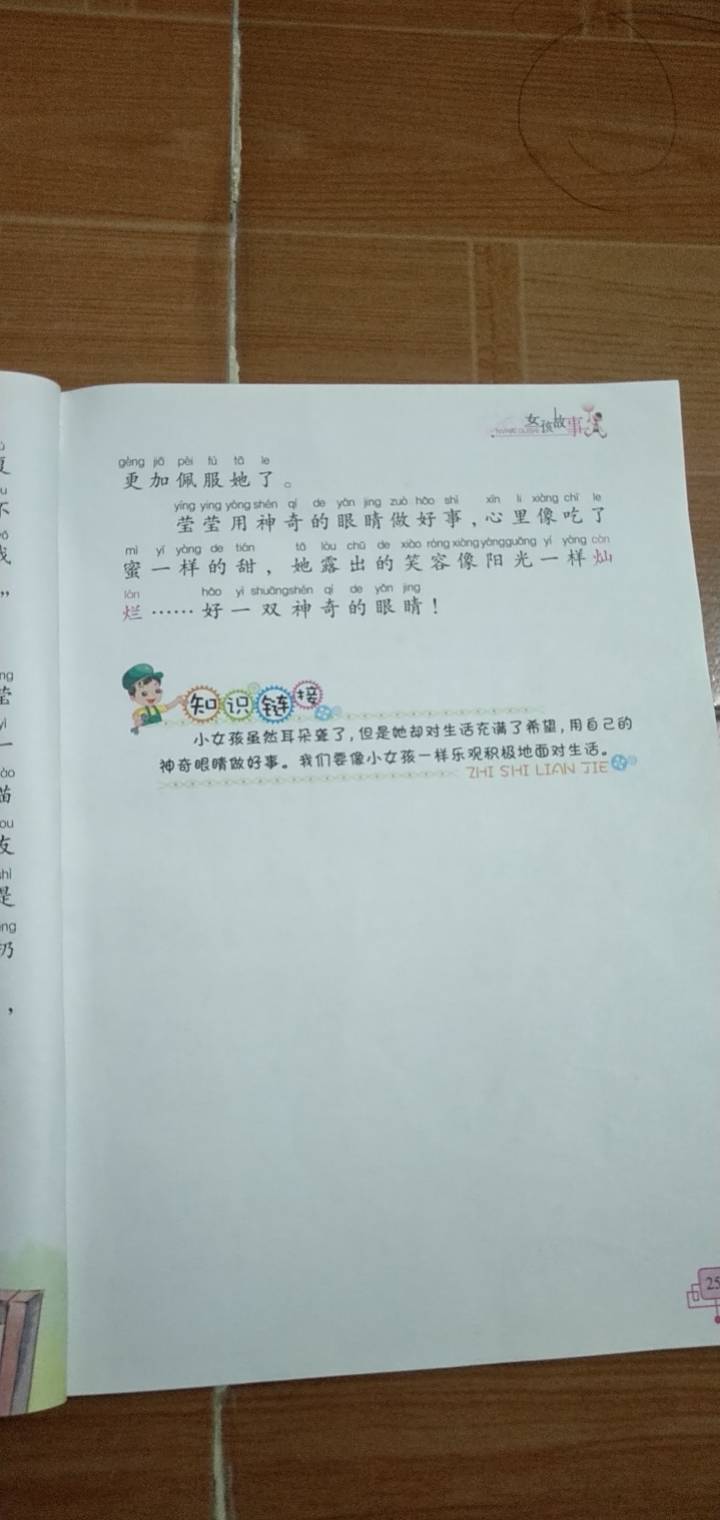 女孩故事
gèng jiā pèi fú tā le
更加佩服她了。
yíng ying yòng shén qí de yǎn jing zuò hǎo shì xīn li xiàng chī le
莹莹用神奇的眼睛做好事，心里像吃了
mì yí yàng de tián tā lòu chū de xiào róng xiàng yáng guāng yí yàng càn
蜜一样的甜，她露出的笑容像阳光一样灿
làn hǎo yì shuāng shén qí de yǎn jing
烂……好一双神奇的眼睛！
知识链接
小女孩虽然耳朵聋了，但是她却对生活充满了希望，用自己的
神奇眼睛做好事。我们要像小女孩一样乐观积极地面对生活。
ZHI SHI LIAN JIE
25